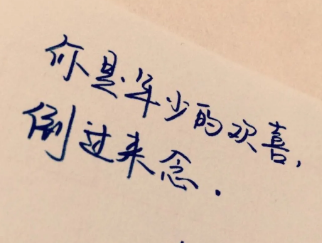 你是年少的欢喜，
倒过来念．